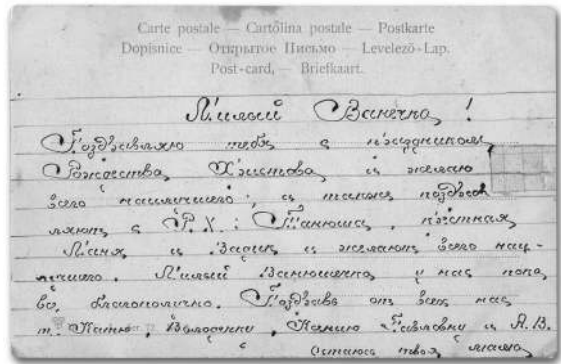 Carte postale — Cartõlina postale — Postkarte
Dopisnice — Открытое Письмо — Levelező-Lap.
Post-card, — Briefkaart.
Милый Ванечка!
Поздравляю тебя с праздником
Рождества Христова и желаю
всего наилучшего, и также поздрав
ляют с Р. Х.: Танюша, крестная,
Маня и Заик и желают всего наи-
лучшего. Милый Ванюшечка, у нас пока
всё благополучно. Поздравь от всех нас
т. Катю, Володечку, Павловну и А. В.
Остаюсь твоя мама